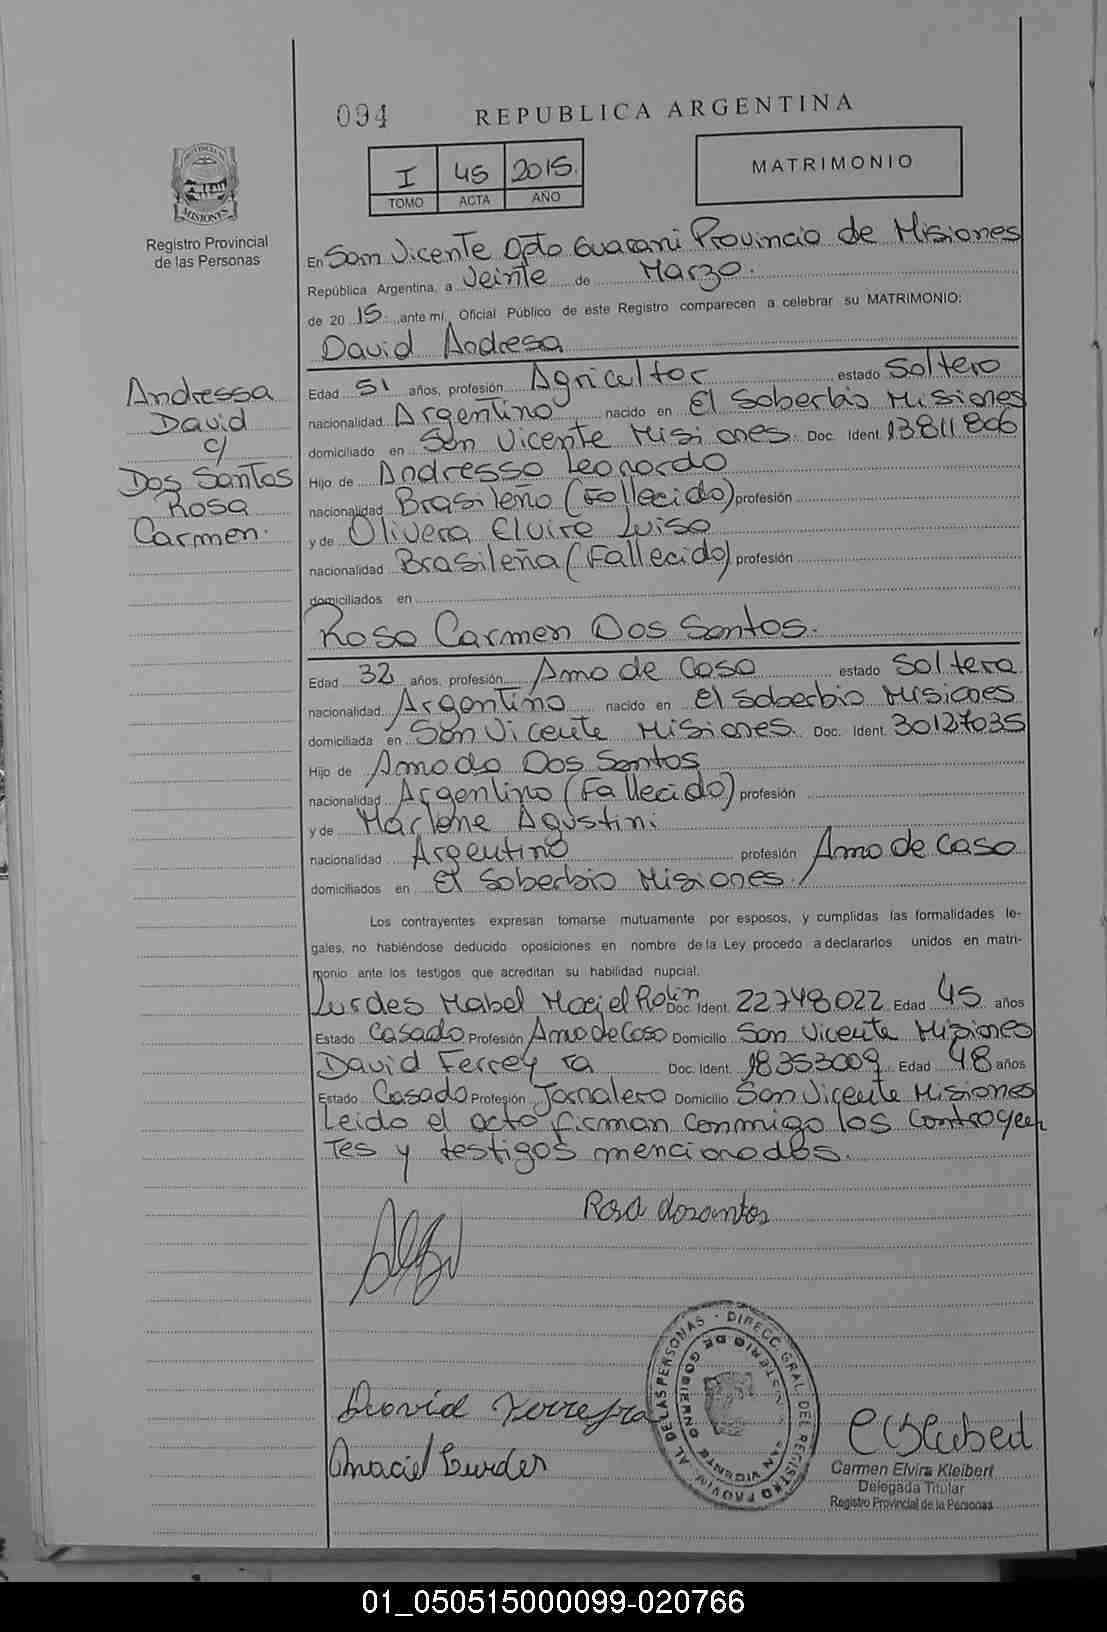 094
REPUBLICA ARGENTINA
I 45 2015.
TOMO ACTA AÑO
MATRIMONIO
PROVINCIA DE
MISIONES
Registro Provincial
de las Personas
En San Vicente Dpto Guarani Provincia de Misiones
República Argentina, a Veinte de Marzo.
de 20 15. ante mí, Oficial Público de este Registro comparecen a celebrar su MATRIMONIO:
David Andresa
Andressa
David
c/
Dos Santos
Rosa
Carmen.
Edad 51 años, profesión Agricultor estado Soltero
nacionalidad Argentino nacido en El Soberbio Misiones
domiciliado en San Vicente Misiones. Doc. Ident. 13811806
Hijo de Andressa Leonardo
nacionalidad Brasileño (Fallecido) profesión
y de Olivera Elvira Luisa
nacionalidad Brasileña (Fallecido) profesión
domiciliados en
Rosa Carmen Dos Santos.
Edad 32 años, profesión Ama de Casa estado Soltera
nacionalidad Argentina nacido en El Soberbio Misiones
domiciliada en San Vicente Misiones. Doc. Ident. 30127035
Hijo de Amado Dos Santos
nacionalidad Argentino (Fallecido) profesión
y de Marlene Agustini
nacionalidad Argentino profesión Ama de Casa
domiciliados en El Soberbio Misiones.
Los contrayentes expresan tomarse mutuamente por esposos, y cumplidas las formalidades le-
gales, no habiéndose deducido oposiciones en nombre de la Ley procedo a declararlos unidos en matri-
monio ante los testigos que acreditan su habilidad nupcial.
Lurdes Mabel Maciel Rolin Doc. Ident. 22748022 Edad 45 años
Estado Casado Profesión Ama de Casa Domicilio San Vicente Misiones
David Ferreyra Doc. Ident. 18353009 Edad 48 años
Estado Casado Profesión Jornalero Domicilio San Vicente Misiones
Leido el acto firman conmigo los contrayen
tes y testigos mencionados.
Rosa dosantos
David Ferreyra
Maciel Lurdes
DIRECC. GRAL. DEL REGISTRO PROVINCIAL DE LAS PERSONAS
MINISTERIO DE GOBIERNO
SAN VICENTE
Carmen Elvira Kleibert
Delegada Titular
Registro Provincial de la Personas
01_050515000099-020766